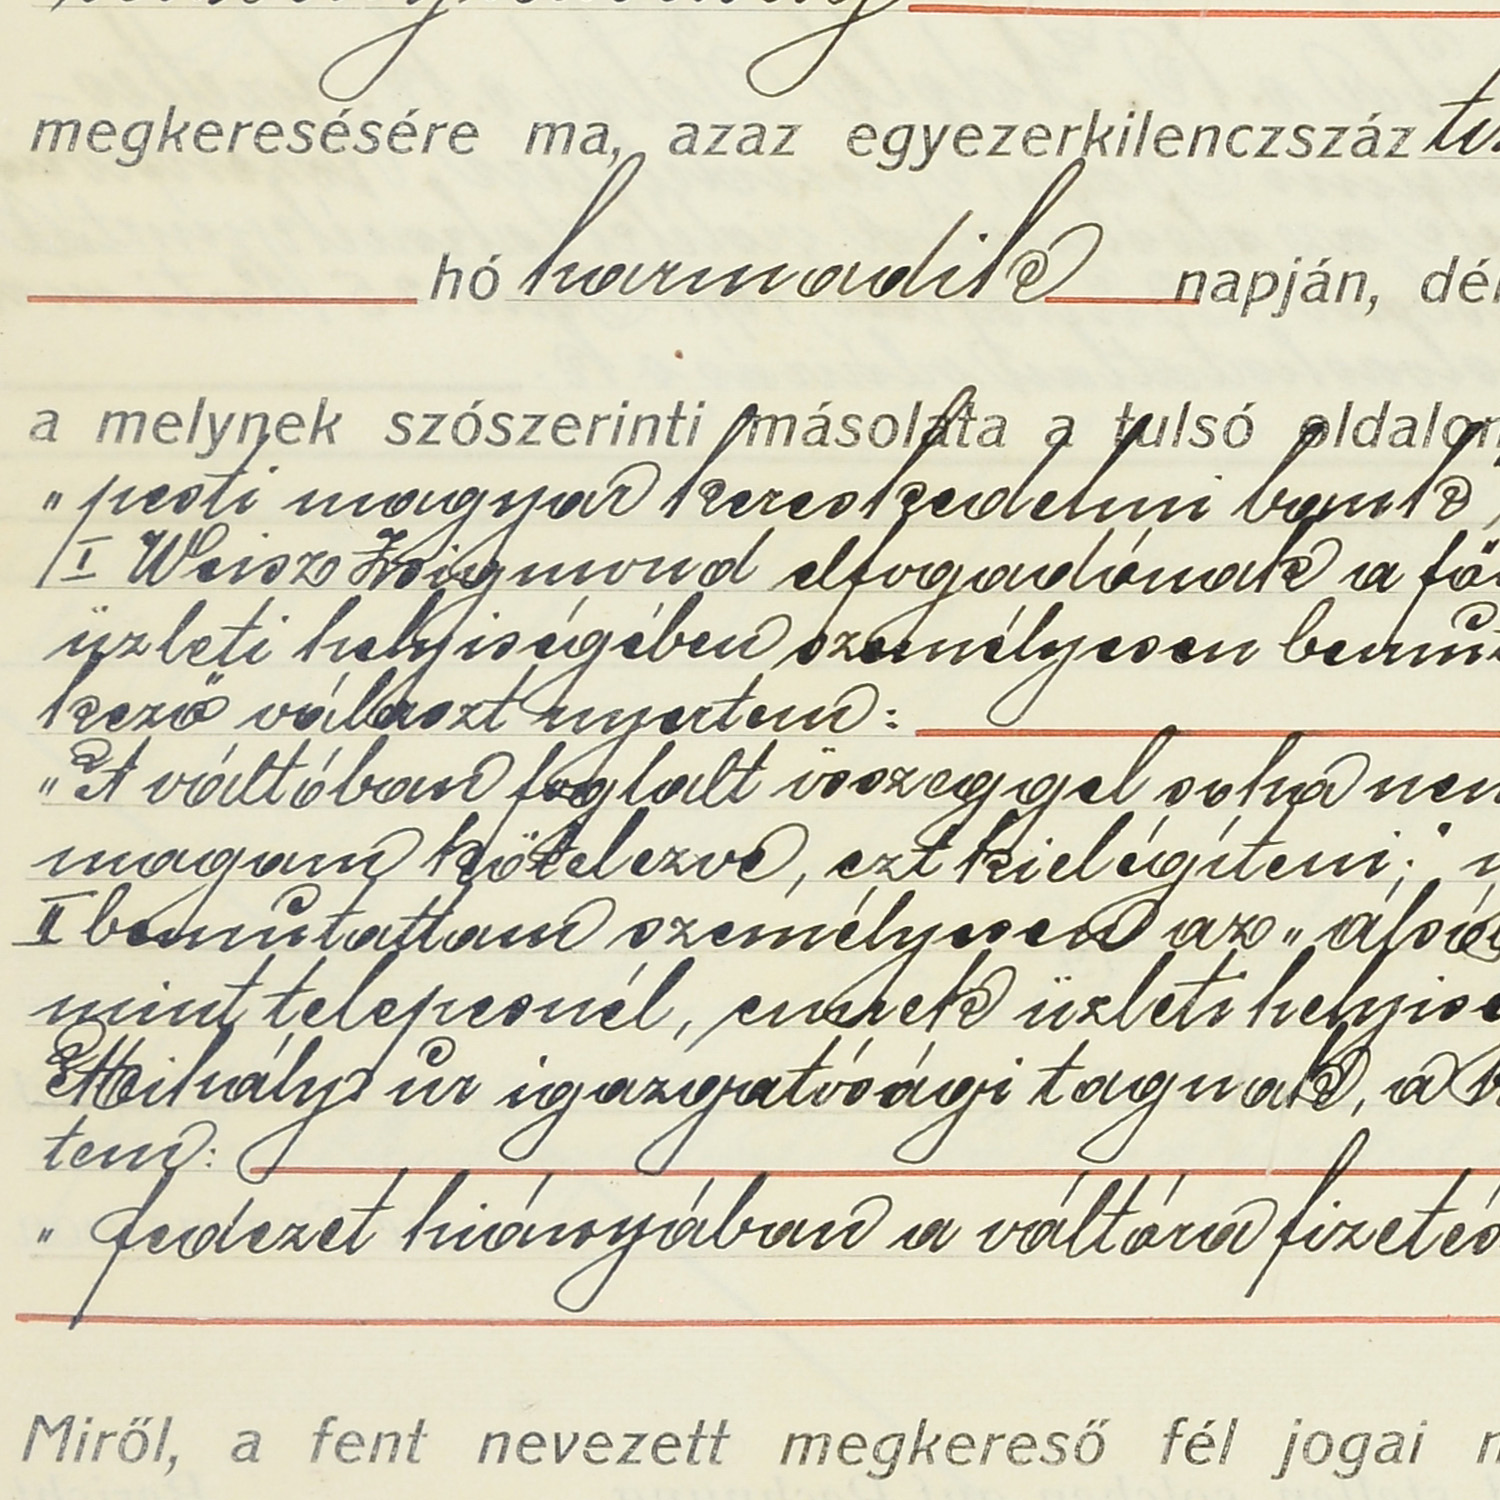 megkeresésére ma, azaz egyezerkilenczszáz
hó harmadik napján, dél
a melynek szószerinti másolata a tulsó oldalon
„pesti magyar kereskedelmi bank
I Weisz Zsigmond elfogadónak a fő
üzleti helyiségében személyesen bemut
kező választ nyertem:
„A váltóban foglalt összeggel soha nem
magam kötelezve, ezt kielégíteni;"
II bemutattam személyesen az „alsó
mint telepesnél, ennek üzleti helyisé
Mihály ur igazgatósági tagnak, a
tem:
„ fedezet hiányában a váltóra fizetés
Miről, a fent nevezett megkereső fél jogai